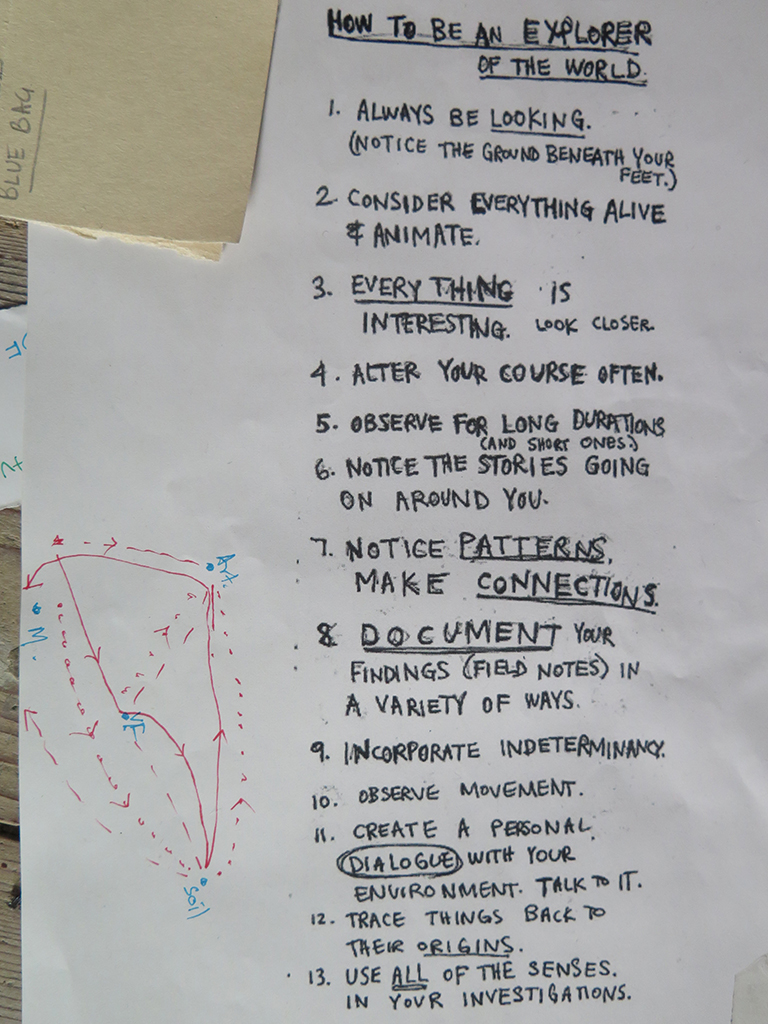 BLUE BAG
HOW TO BE AN EXPLORER
OF THE WORLD.
1. ALWAYS BE LOOKING.
(NOTICE THE GROUND BENEATH YOUR
FEET.)
2. CONSIDER EVERYTHING ALIVE
& ANIMATE.
3. EVERY THING IS
INTERESTING. LOOK CLOSER.
4. ALTER YOUR COURSE OFTEN.
5. OBSERVE FOR LONG DURATIONS
(AND SHORT ONES.)
6. NOTICE THE STORIES GOING
ON AROUND YOU.
7. NOTICE PATTERNS,
MAKE CONNECTIONS.
8 DOCUMENT YOUR
FINDINGS (FIELD NOTES) IN
A VARIETY OF WAYS.
9. INCORPORATE INDETERMINANCY.
10. OBSERVE MOVEMENT.
11. CREATE A PERSONAL
DIALOGUE WITH YOUR
ENVIRONMENT. TALK TO IT.
12. TRACE THINGS BACK TO
THEIR ORIGINS.
13. USE ALL OF THE SENSES.
IN YOUR INVESTIGATIONS.
Art.
M.
Soil